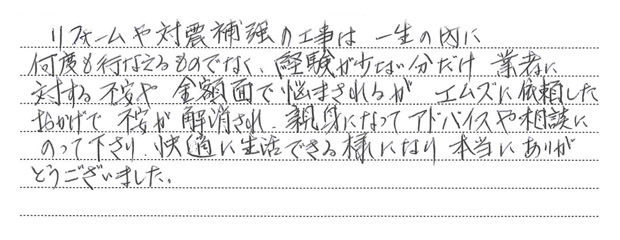 リフォームや対震補強の工事は 一生の内に
何度も行なえるものでなく、経験が少ない分だけ 業者に
対する不安や 金額面で悩まされるが エムズに依頼した
おかげで 不安が解消され 親身になってアドバイスや相談に
のって下さり、快適に生活できる様になり 本当にありが
とうございました。